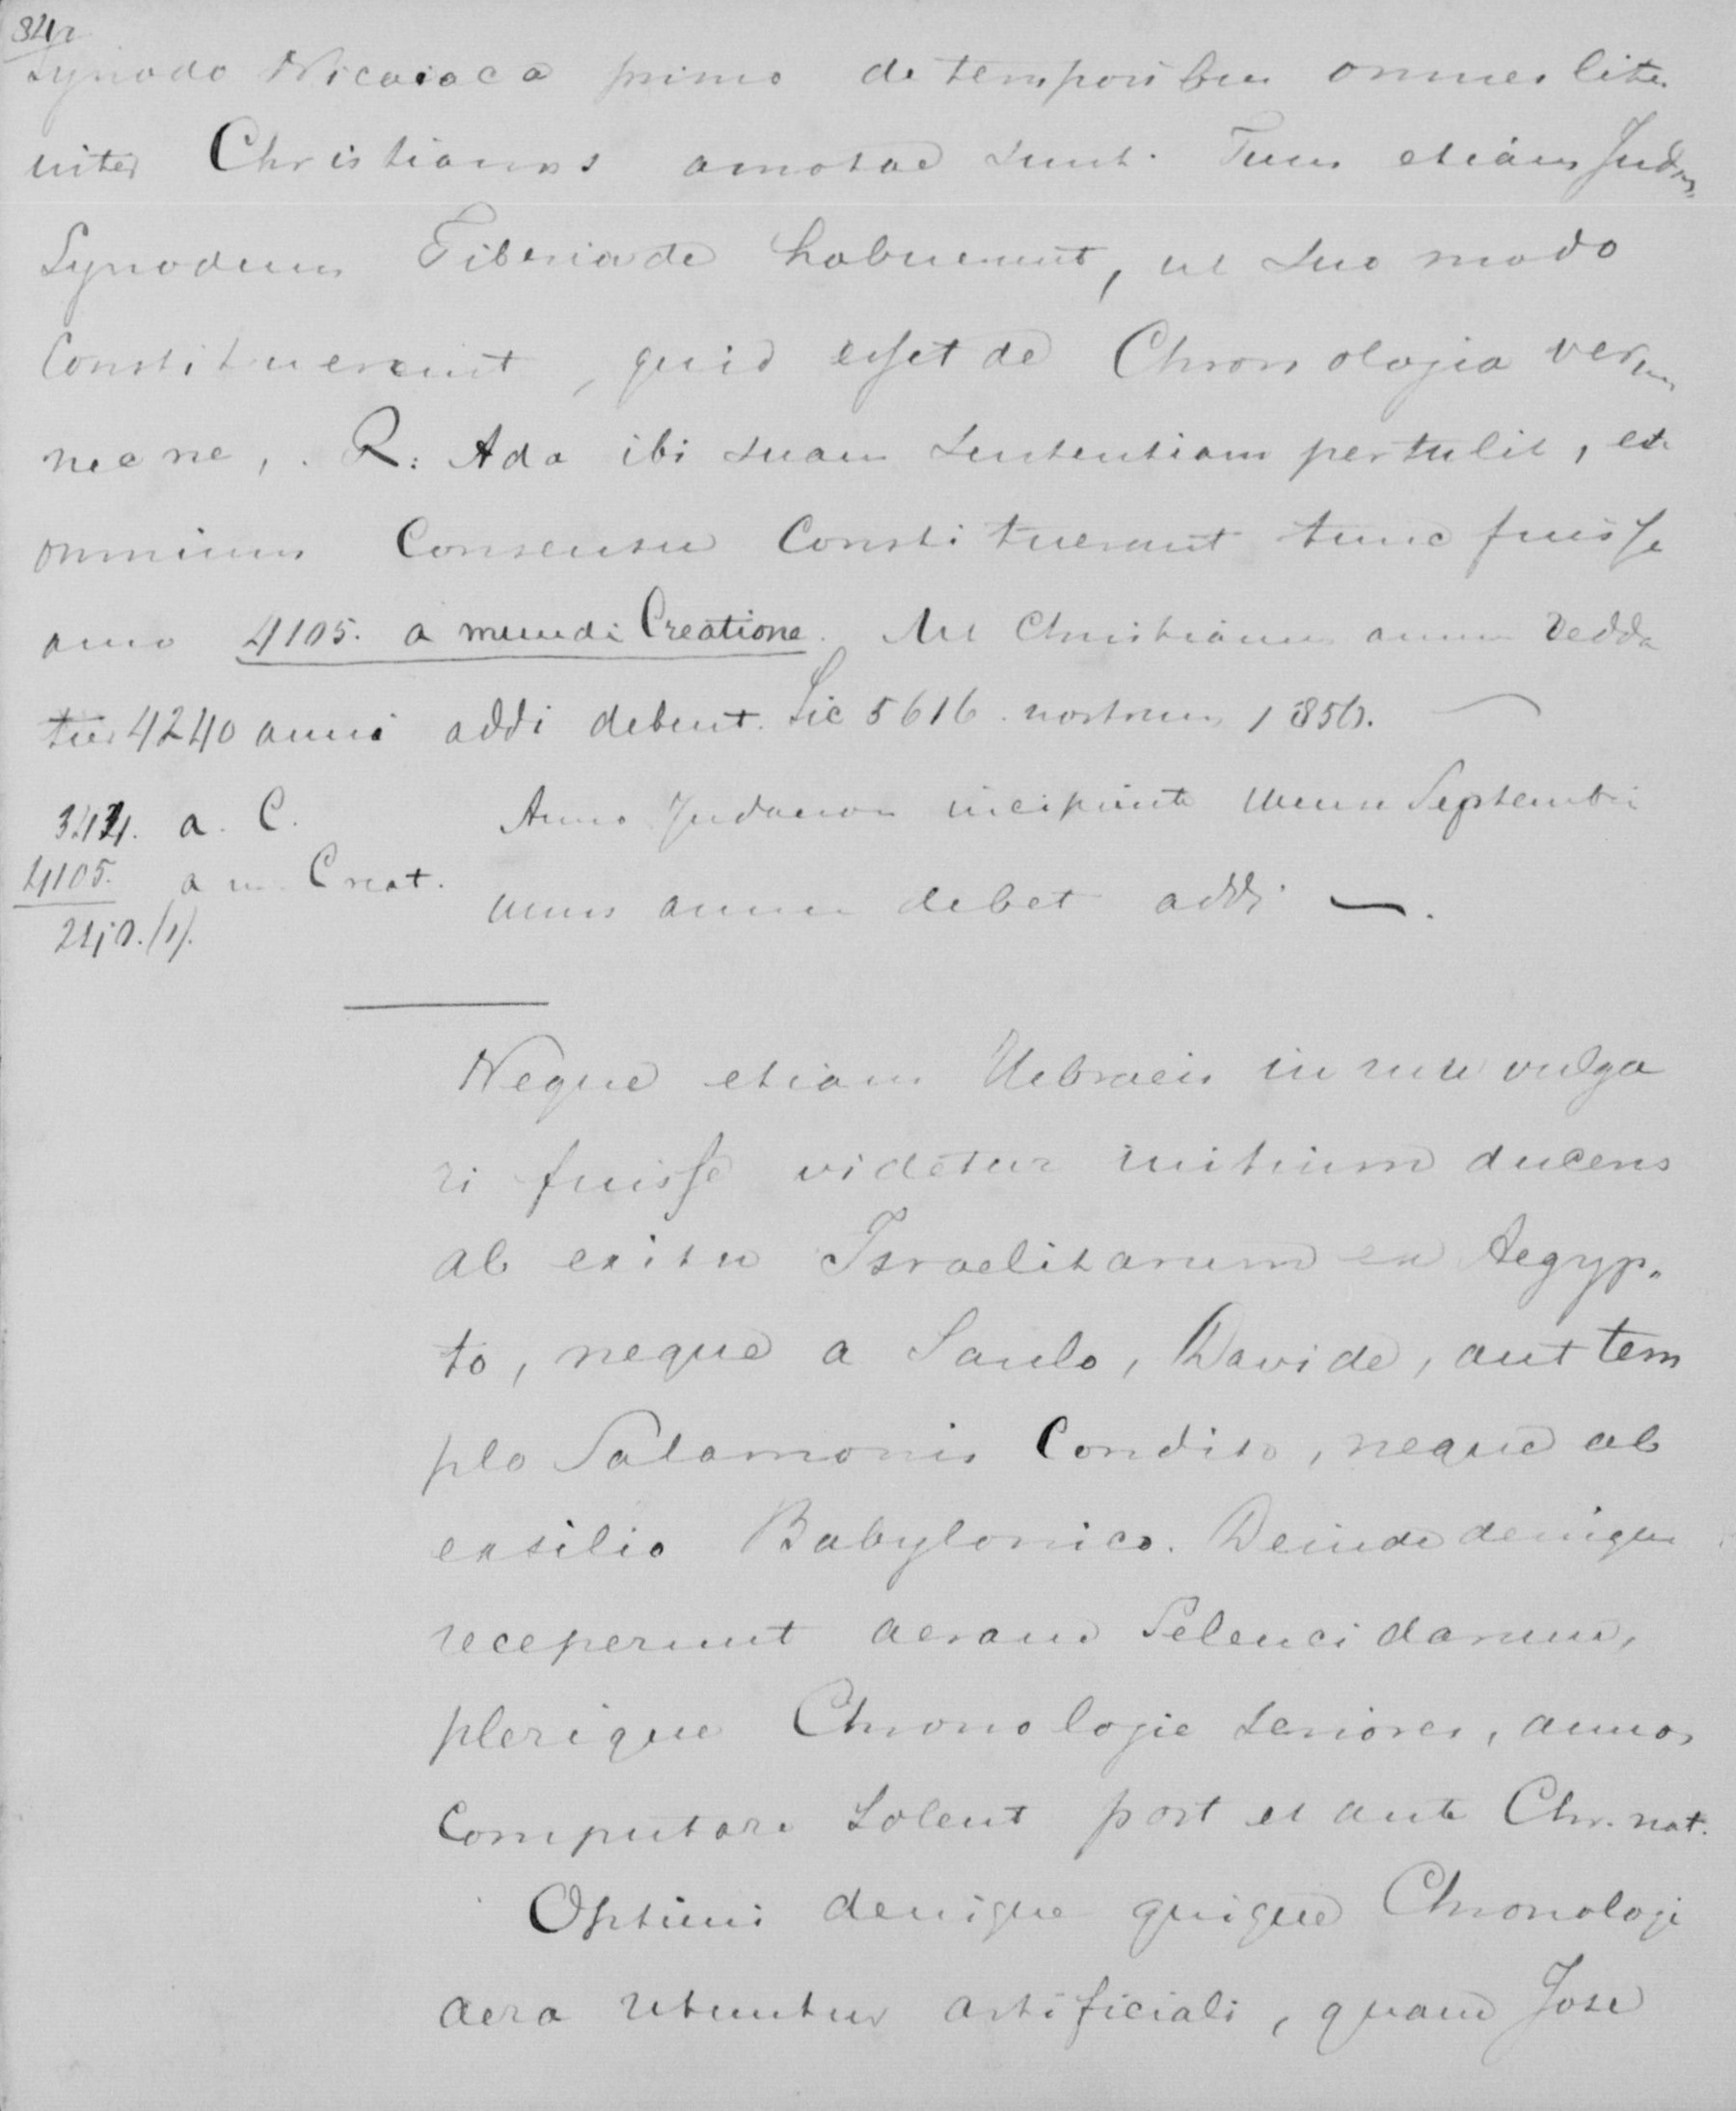 Synodo Nicaiaca primo de temporibus omnes lites
inter Christianos amotae sunt. Tum etiam Judaei
Synodum Tiberiade habuerunt, ut suo modo
Constituerent, quid esset de Chronologia verum
nec ne, . R: Ada ibi suam sententiam pertulit, et
omnium Consensu Constituerunt tunc fuisse
anno 4105. a mundi Creatione. Ut Christianus annus redda
tur 4240 anni addi debent. Sic 5616. nostrum 1856.
Anno Judaeorum incipiente mense Septembri
a. C.
4105. a m. Creat.
unus annus debet addi —.
Neque etiam Hebraeis in usu vulga
ri fuisse videtur initium ducens
ab exitu Israelitarum ex Aegyp„
to, neque a Saulo, Davide, aut tem
plo Salamonis Condito, neque ab
exsilio Babylonico. Deinde denique
receperunt aeram Seleucidarum,
plerique Chronologie seniores, annos
Computare solent post et ante Chr. nat.
Optimi denique quique Chronologi
aera utuntur artificiali, quam Jose